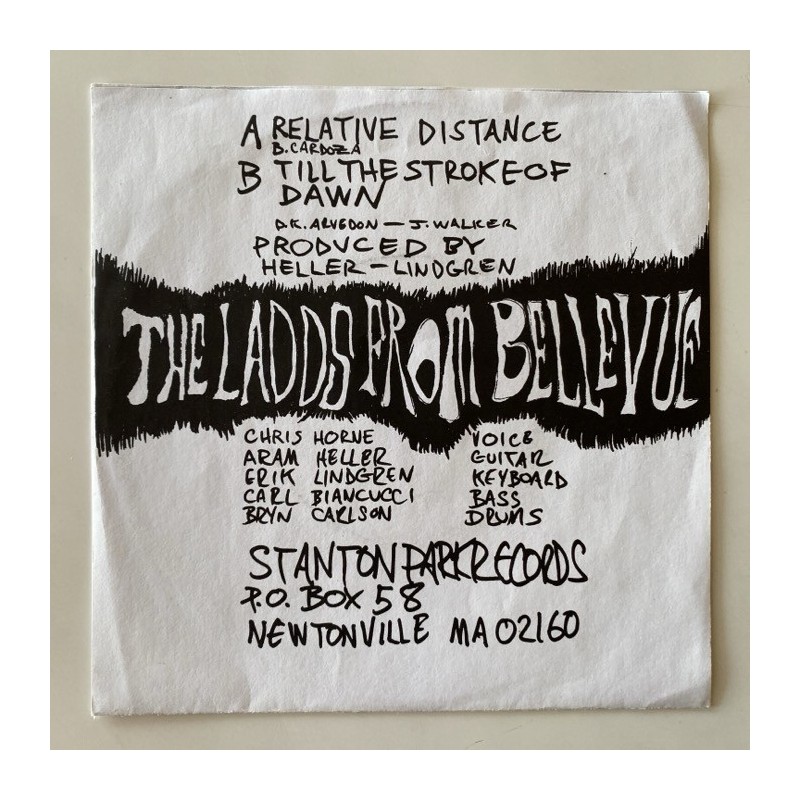 A RELATIVE DISTANCE
B. CARDOZA
B TILL THE STROKE OF
DAWN
D.K. ARVEDON – J. WALKER
PRODUCED BY
HELLER – LINDGREN
THE LADDS FROM BELLEVUE
CHRIS HORNE VOICE
ARAM HELLER GUITAR
ERIK LINDGREN KEYBOARD
CARL BIANCUCCI BASS
BRYN CARLSON DRUMS
STANTON PARK RECORDS
P.O. BOX 58
NEWTONVILLE MA 02160